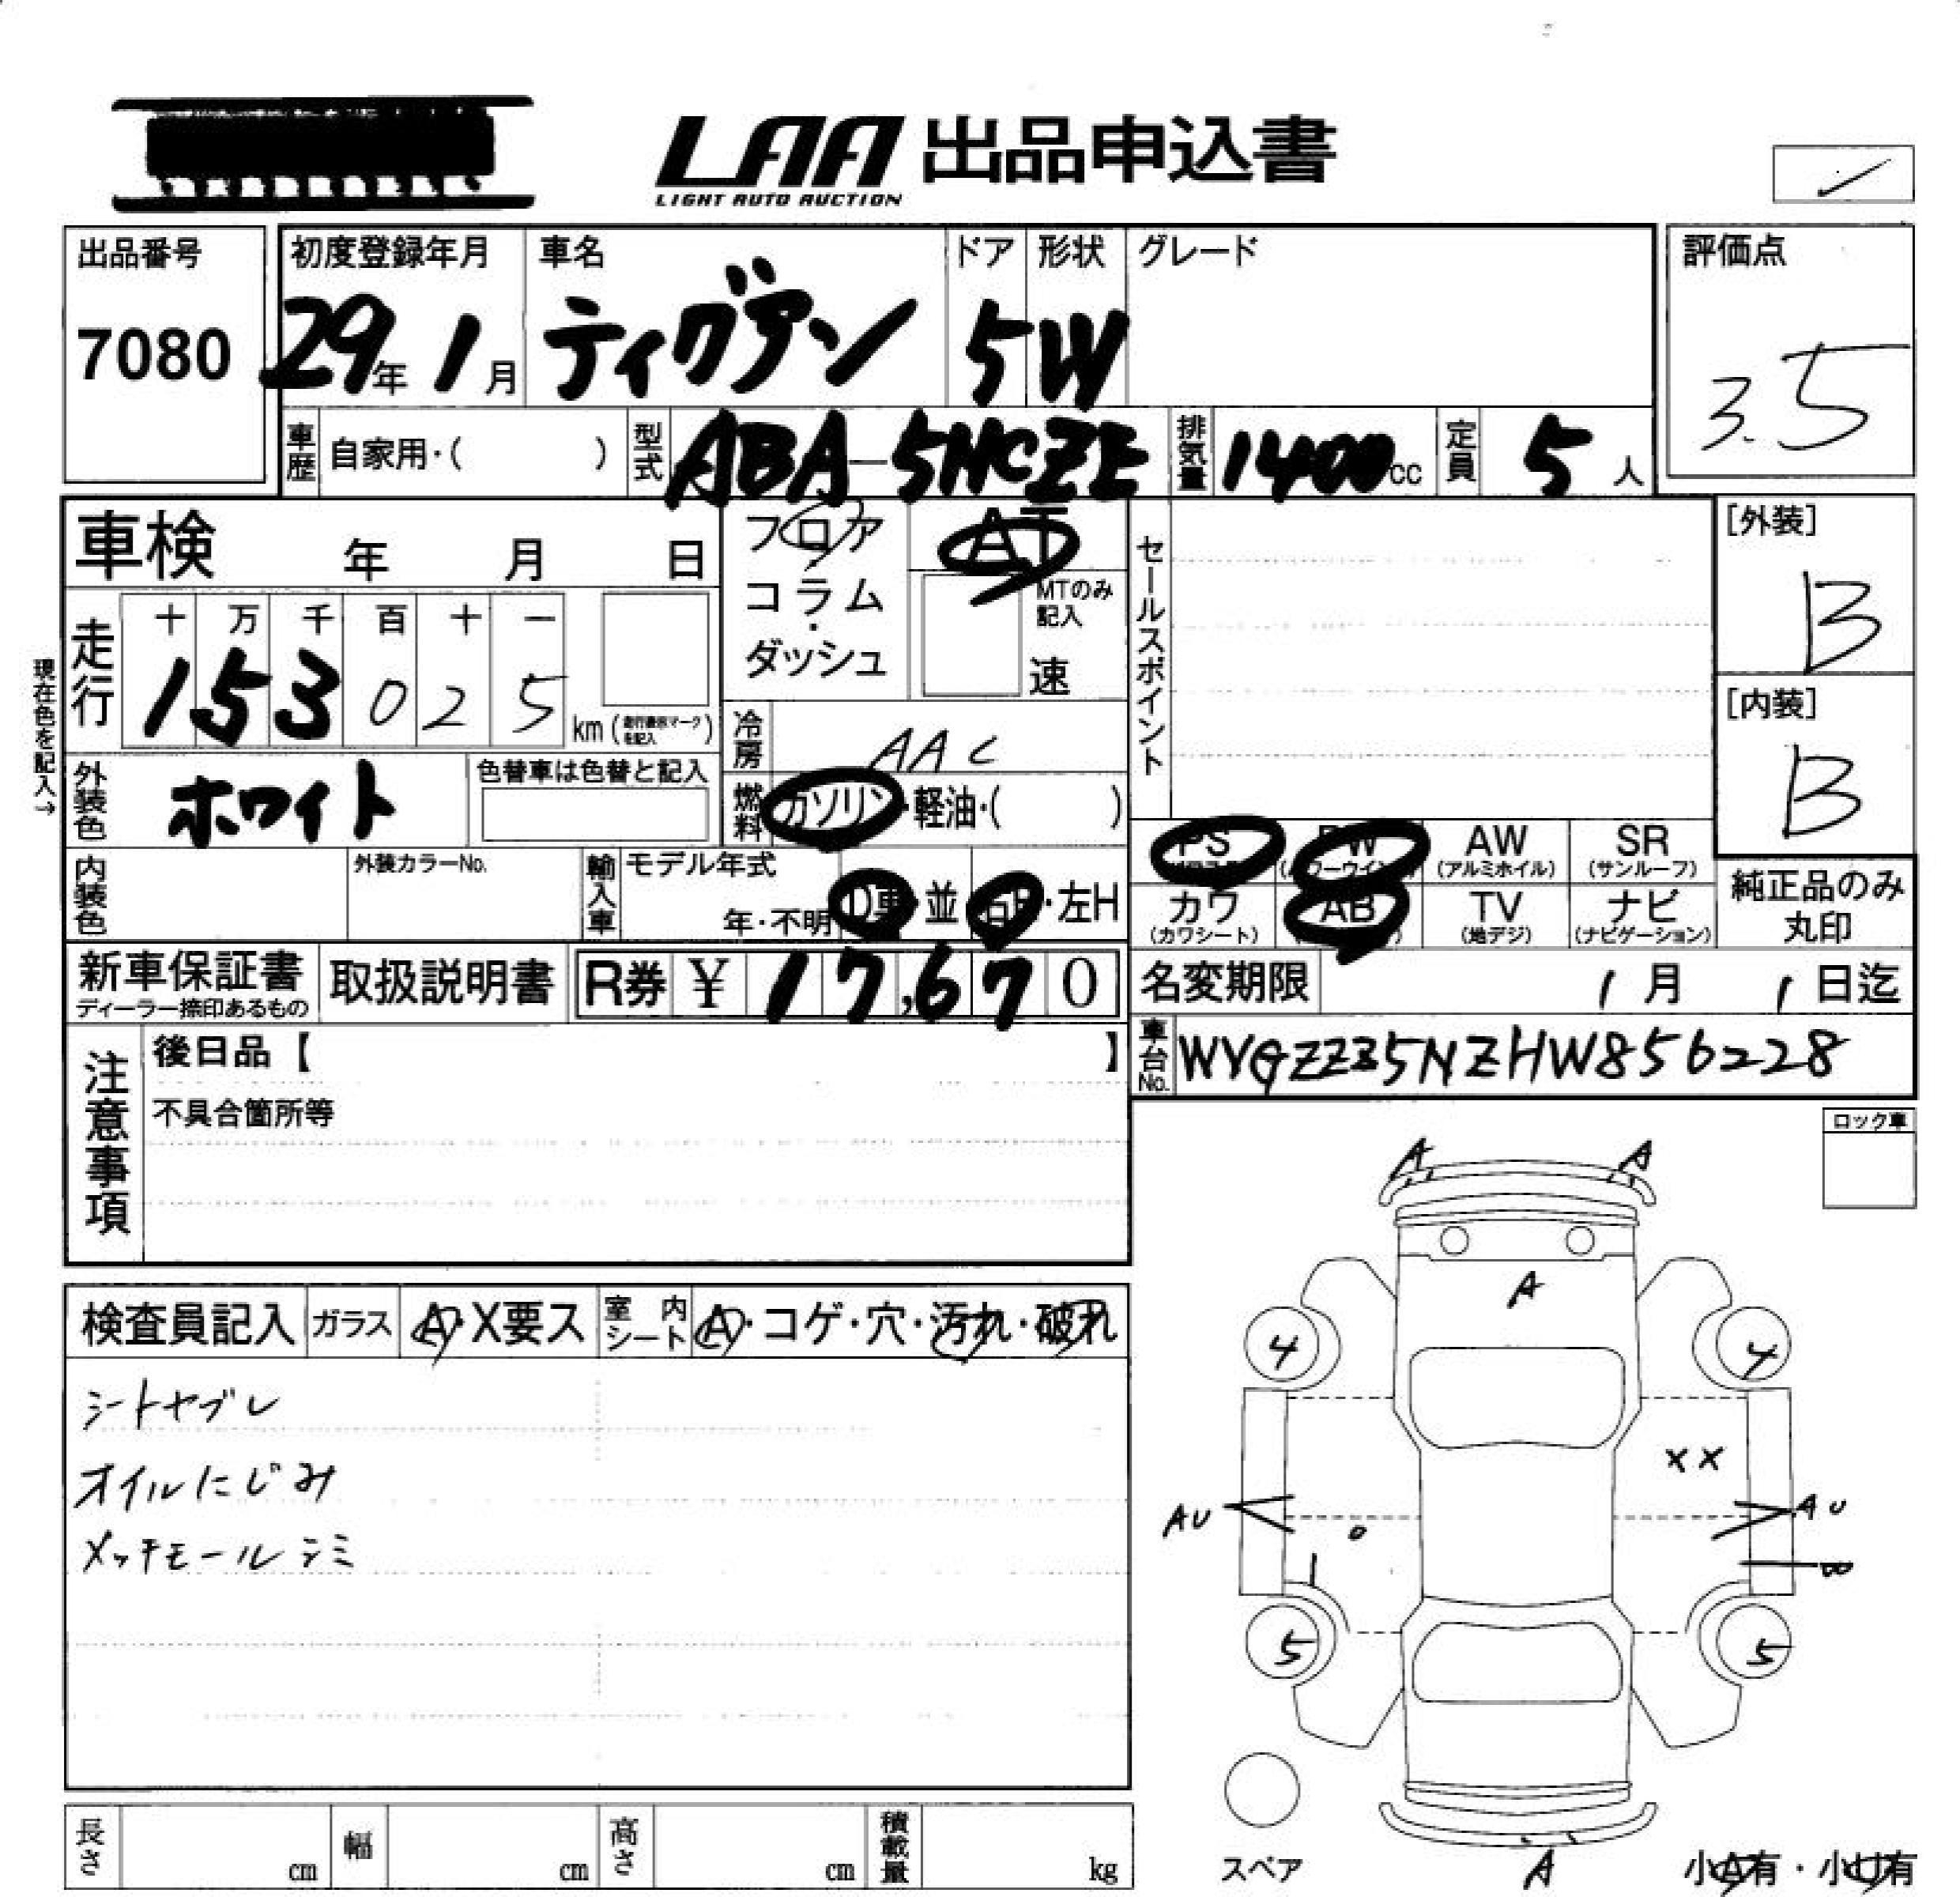 LAA 出品申込書
LIGHT AUTO AUCTION
出品番号 初度登録年月 車名 ドア 形状 グレード 評価点
7080 29年 1月 ティグアン 5 W 3.5
車歴 自家用・( ) 型式 ABA-5NCZE 排気量 1400cc 定員 5人
車検 年 月 日 フロア AT セールスポイント [外装]
コラム・ MTのみ記入 B
ダッシュ 速
現在色を記入→
走行 十 万 千 百 十 一
1 5 3 0 2 5 km (走行表示マークを記入) [内装]
冷房 AAC B
外装色 ホワイト 色替車は色替と記入 燃料 ガソリン・軽油・( )
PS PW AW SR
(パワーウインドウ) (アルミホイル) (サンルーフ)
内装色 外装カラーNo. 輸入車 モデル年式 年・不明 D車・並 右H・左H
カワ AB TV ナビ 純正品のみ
(カワシート) (地デジ) (ナビゲーション) 丸印
新車保証書 取扱説明書 R券 ¥ 17,670 名変期限 1月 1日迄
ディーラー捺印あるもの
車台No. WVGZZZ5NZHW856228
注意事項 後日品【 】
不具合箇所等
ロック車
A A
A
検査員記入 ガラス A・X要ス 室内シート A・コゲ・穴・汚れ・破れ
4 4
シートヤブレ
XX
オイルにじみ
AU AU
メッキモールシミ
5 5
長さ cm 幅 cm 高さ cm 積載量 kg
スペア A 小A有・小U有